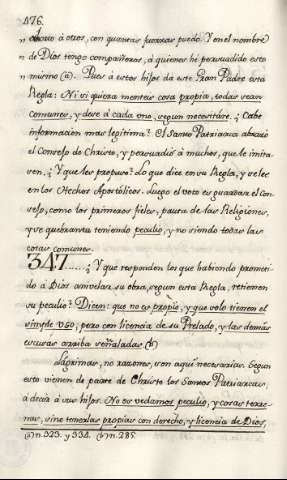 176.
" abrazo á otros, con quantas fuerzas puedo. Y en el nombre
" de Dios tengo compañeros, á quienes hé persuadido esto
" mismo (a). Pues á estos hijos da este Gran Padre esta
Regla: Ni vi quiera menteis cosa propia, todas sean
comunes, y dese á cada uno, segun necesitáre. ¿ Cabe
informacion mas legitima? El Santo Patriarca abrazó
el Consejo de Christo, y persuadió á muchos, que le imita-
sen. ¿ Y que les propuso? Lo que dice en su Regla, y se lee
en los Hechos Apostólicos. Luego el voto es guardar el Con-
sejo, como los primeros fieles, pauta de las Religiones,
y se quebranta teniendo peculio, y no siendo todas las
cosas comunes.
347....¿ Y que responden los que habiendo prometi-
do á Dios anivelar su obra, segun esta Regla, retienen
su peculio? Dicen: que no es propio, y que solo tienen el
simple uso, pero con licencia de su Prelado, y las demás
escusas arriba señaladas (b)
Lagrimas, no razones, son aqui necesarias. Segun
esto vienen de parte de Christo los Santos Patriarcas,
á decir á sus hijos. No os vedamos peculio, y cosas terre-
nas, sino tenerlas propias con derecho, y licencia de Dios,
(a) n. 323. y 334. (b) n. 285.